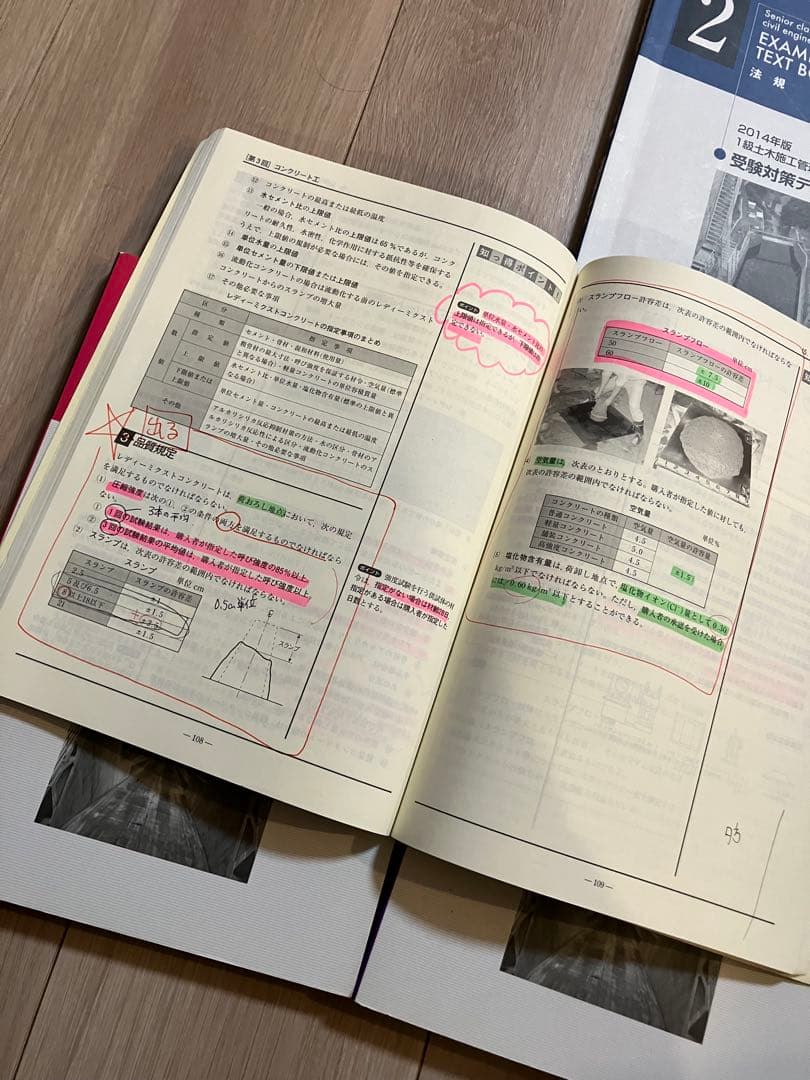 [第3回] コンクリート工
⑫ コンクリートの最高または最低の温度
⑬ 水セメント比の上限値
一般の場合、水セメント比の上限値は65%であるが、コンク
リートの耐久性、水密性、化学作用に対する抵抗性等を確保する
うえで、上限値の規制が必要な場合には、その値を指定できる。
⑭ 単位水量の上限値
⑮ 単位セメント量の下限値または上限値
⑯ 流動化コンクリートの場合は流動化する前のレディーミクスト
コンクリートからのスランプの増大量
⑰ その他必要な事項
レディーミクストコンクリートの指定事項のまとめ
区分
指定事項
種類
セメント・骨材・混和材料(使用量)
数値
指定値
上限値
下限値または
上限値
単位セメント量・コンクリートの最高または最低の温度
その他
出る
3 品質規定
レディーミクストコンクリートは、荷おろし地点において、次の規定
を満足するものでなければならない。
(1) 圧縮強度は次の①、②の条件の両方を満足するものでなければなら
ない。
3本の平均
① 1回の試験結果は、購入者が指定した呼び強度の85%以上
② 3回の試験結果の平均値は、購入者が指定した呼び強度以上
(2) スランプは、次表の許容差の範囲内でなければならない。
スランプ 単位cm
スランプ スランプの許容差
2.5 ±1
5及び6.5 ±1.5
8以上18以下 ±2.5
21 ±1.5
0.5cm単位
スランプ
知っ得ポイント!
ポイント 単位水量・水セメント比の
上限値は指定できるが、下限値は指
定できない。
ポイント 強度試験を行う供試体の材
令は、指定がない場合は材齢28日、
指定がある場合は購入者が指定した
日数とする。
—108—
(3) スランプフロー許容差は、次表の許容差の範囲内でなければならな
い。
スランプフロー 単位cm
スランプフロー スランプフローの許容差
50 ±7.5
60 ±10
(4) 空気量は、次表のとおりとする。購入者が指定した値に対しても、
次表の許容差の範囲内でなければならない。
空気量 単位%
コンクリートの種類 空気量 空気量の許容差
普通コンクリート 4.5
軽量コンクリート 5.0
舗装コンクリート 4.5
高強度コンクリート 4.5
±1.5
(5) 塩化物含有量は、荷卸し地点で、塩化物イオン(Cl⁻)量として0.30
kg/m³以下でなければならない。ただし、購入者の承認を受けた場合
には、0.60kg/m³以下とすることができる。
—109—
2
Senior cla
civil engine
EXAM
TEXT B
法規
2014年版
1級土木施工管
受験対策テ